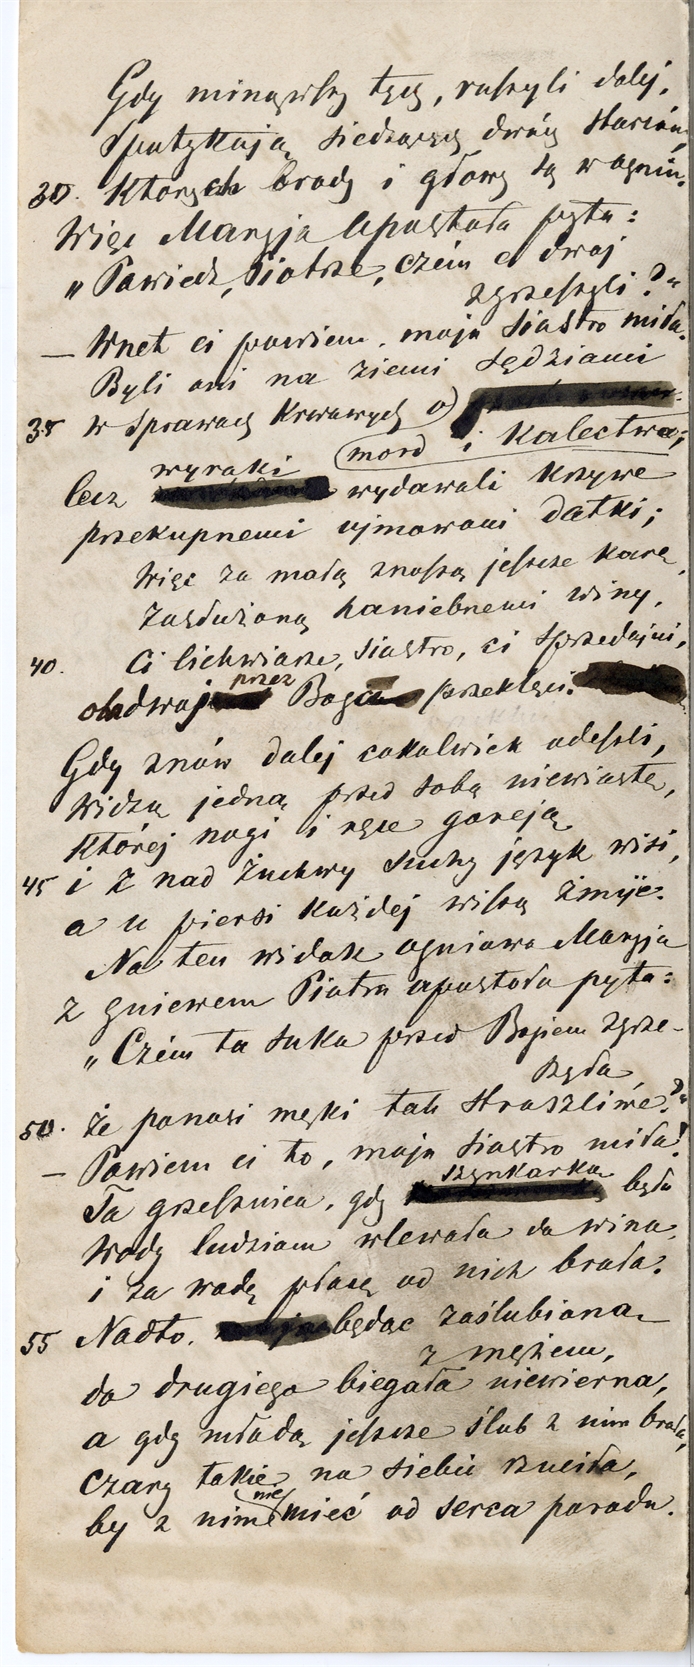 Gdy minąwszy tych, ruszyli dalej,
spotykają siedzących dwóch starców,
30. których brody i głowy są w ogniu.
Więc Maryja Apostoła pyta:
„Powiedz, Piotrze, czem ci dwaj
zgrzeszyli?"
— Wnet ci powiem, moja siostro miła.
Byli oni na ziemi sędziami
35 w sprawach krwawych o
mord i kalectwo;
lecz wyroki wydawali krzywe
przekupnemi ujmowani datki;
więc za małą znoszą jeszcze karę
zasłużoną haniebnemi winy.
40. Ci lichwiarze, siostro, ci sprzedajni,
obdwaj przez Boga przeklęci.
Gdy znów dalej cokolwiek odeszli,
widzą jedną przed sobą niewiastę,
której nogi i ręce goreją
45 i z nad żuchwy suchy język wisi,
a u piersi każdej wiszą żmije.
Na ten widok ogniowa Maryja
z gniewem Piotra apostoła pyta:
„Czem ta suka przed Bogiem zgrze-
szyła
50. że ponosi męki tak straszliwe?"
— Powiem ci to, moja siostro miła!
Ta grzesznica, gdy szynkarką była
wody ludziom wlewała do wina,
i za wodę płacę od nich brała.
55 Nadto, będąc zaślubiona
z mężem,
do drugiego biegała niewierna,
a gdy młodą jeszcze ślub z nim brała,
czary takie na siebie rzuciła,
by z nim nie mieć od serca porodu.